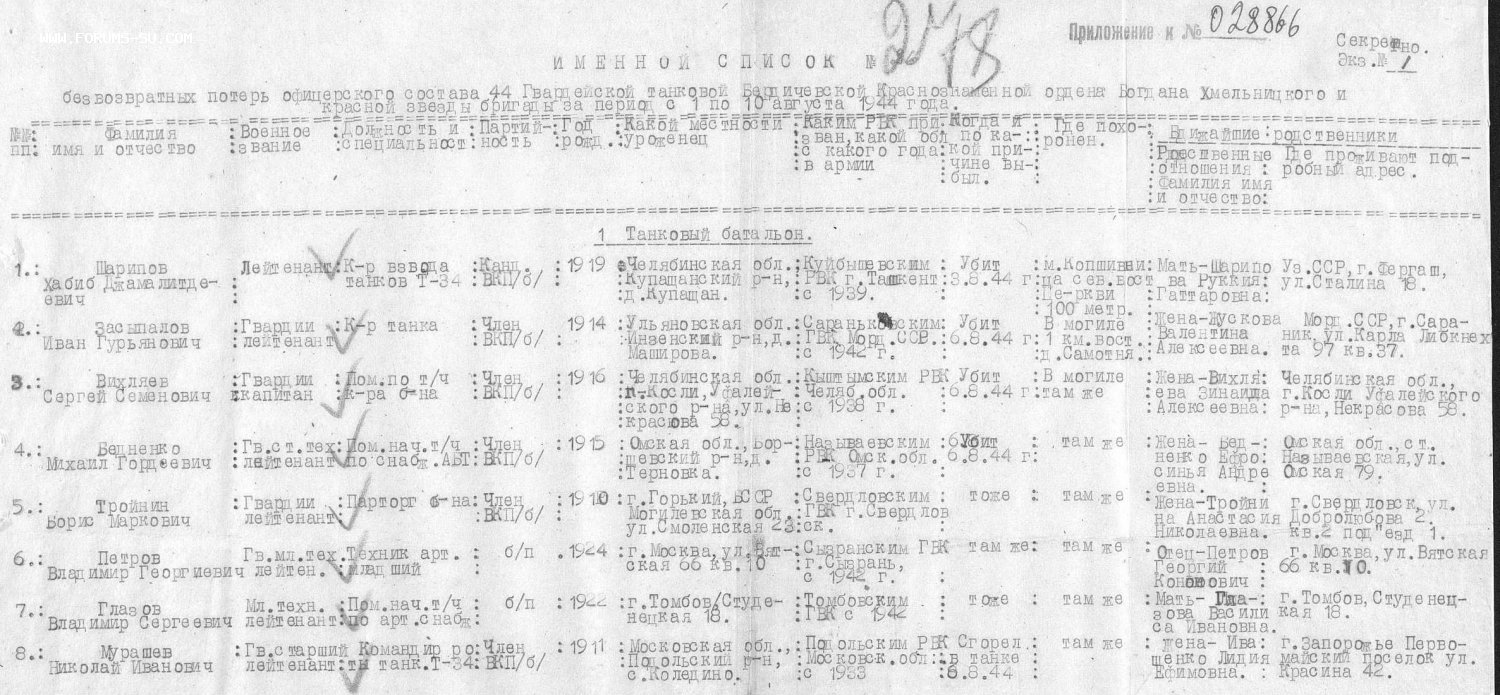 WWW.FORUMS-SU.COM
2478
Приложение к № 028866
Секретно.
Экз.№ 1
ИМЕННОЙ СПИСОК №
безвозвратных потерь офицерского состава 44 Гвардейской танковой Бердичевской Краснознаменной ордена Богдана Хмельницкого и
красной звезды бригады за период с 1 по 10 августа 1944 года.
№№: Фамилия :Военное :Должность и :Партий-:Год :Какой местности :Каким РВК при.:Когда и : Где похо-: Ближайшие:родственники
пп. имя и отчество :звание :специальност:ность :рожд.:уроженец :зван,какой обл :по ка- : ронен. :Родственные Где проживают под-
:с какого года:кой при-: :отношения : робный адрес.
:в армии :чине вы-: :Фамилия имя
:был. : :и отчество:
1 Танковый батальон.
1.: Шарипов Лейтенант:К-р взвода :Канд. :1919 :Челябинская обл.,:Куйбышевским : Убит :м.Копшивни:Мать-Шарипо Уз.ССР,г.Фергаш,
Хабиб Джамалитде- : танков Т-34 :ВКП/б/ : :Купащанский р-н,:РВК г.Ташкент:3.8.44 г:ца сев.вост ва Руккия: ул.Сталина 18.
евич : :д.Купащан. :с 1939. : :Церкви :Гаттаровна:
:100 метр.
2.: Засыпалов :Гвардии :К-р танка :Член :1914 :Ульяновская обл.:Сараньковским: Убит :В могиле :Жена-Жускова Морд.ССР,г.Сара-
Иван Гурьянович :лейтенант: :ВКП/б/ : :Инзенский р-н,д.:ГВК Морд.ССР.:6.8.44 г:1 км.вост.:Валентина ник,ул.Карла Либкнех
Маширова. :с 1942 г. : :д.Самотня.:Алексеевна. та 97 кв.37.
3.: Вихляев :Гвардии :Пом.по т/ч :Член :1916 :Челябинская обл.:Кыштымским РВК Убит :В могиле :Жена-Вихля: Челябинская обл.,
Сергей Семенович :капитан :к-ра б-на :ВКП/б/ : :г.Косли,Уфалей-:Челяб.обл. :6.8.44 г:там же :ева Зинаида г.Косли Уфалейского
:ского р-на,ул.Не:с 1938 г. : : :Алексеевна: р-на,Некрасова 58.
красова 58. :
4.: Бедненко :Гв.ст.тех:Пом.нач.т/ч :Член :1915 :Омская обл.,Бор-:Называевским :Убит : там же :Жена- Бед-: Омская обл.,ст.
Михаил Гордеевич :лейтенант:по снабж.АБТ:ВКП/б/ : :шевский р-н,д. :РВК Омск.обл. 6.8.44 г: :ненко Ефро: Называевская,ул.
:Терновка. :с 1937 г. : :синья Андре Омская 79.
евна. :
5.: Тройнин :Гвардии :Парторг б-на:Член :1910 :г.Горький,БССР :Свердловским : тоже : там же :Жена-Тройни г.Свердловск,ул.
Борис Маркович лейтенант: :ВКП/б/ : Могилевская обл.:ГВК г.Свердлов :на Анастасия Добролюбова 2.
ул.Смоленская 23:ск. : :Николаевна. кв.2 под"езд 1.
6.: Петров Гв.мл.тех.:Техник арт. : б/п .1924 :г.Москва,ул.Вят-:Сызранским ГВК там же: там же :Отец-Петров г.Москва,ул.Вятская
Владимир Георгиевич лейтен. :младший : :ская 66 кв.10 :г.Сызрань, : :Георгий : 66 кв.10.
:с 1942 г. : :Кононович :
7.: Глазов Мл.техн. :Пом.нач.т/ч : б/п :1922 :г.Томбов/Студе-:Томбовским : тоже : там же :Мать- Гла-: г.Томбов,Студенец-
Владимир Сергеевич лейтенант:по арт.снабж: : :нецкая 18. :ГВК с 1942 : :зова Васили кая 18.
са Ивановна.
8.: Мурашев :Гв.старший Командир ро:Член :1911 :Московская обл.,:Подольским РВК Сгорел : там же : жена-Ива: г.Запорожье Перво-
Николай Иванович :лейтенант:ты танк.Т-34:ВКП/б/ : :Подольский р-н, :Московск.обл :в танке : :щенко Лидия майский поселок ул.
:с.Коледино. :с 1933 :8.8.44 : :Ефимовна. : Красина 42.